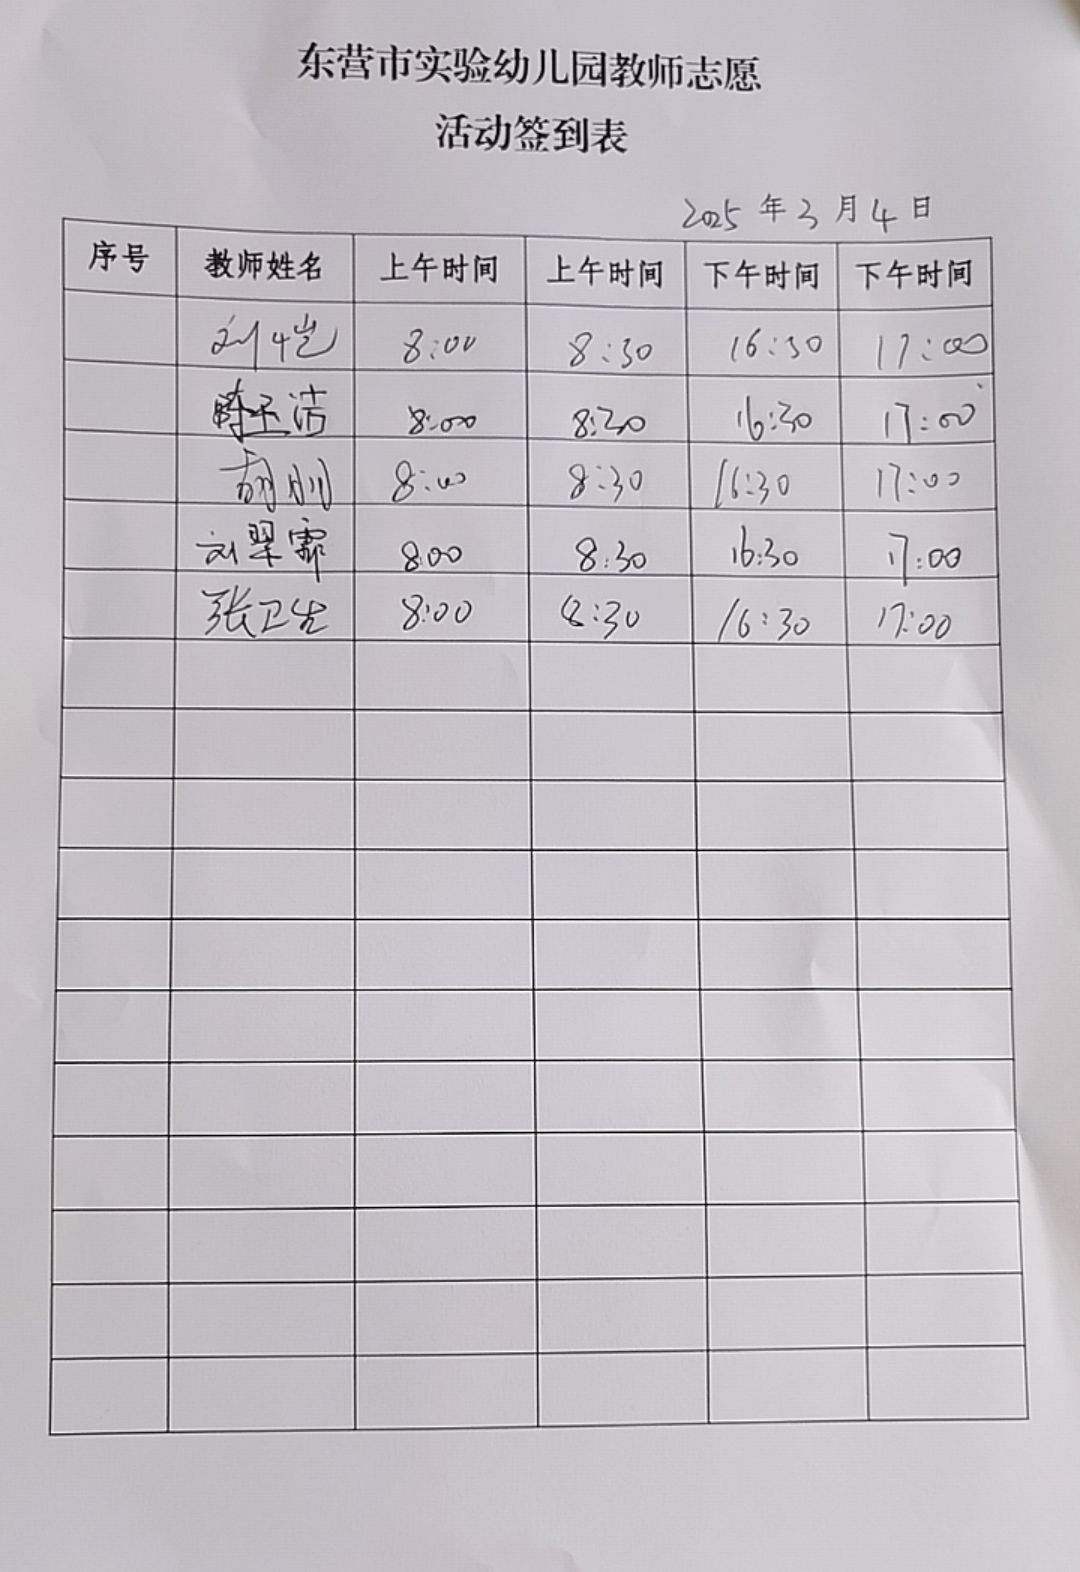 东营市实验幼儿园教师志愿
活动签到表
2025 年 3 月 4 日
序号 教师姓名 上午时间 上午时间 下午时间 下午时间
刘恺 8:00 8:30 16:30 17:00
陈玉洁 8:00 8:30 16:30 17:00
胡刚 8:00 8:30 16:30 17:00
刘翠霏 8:00 8:30 16:30 17:00
张卫生 8:00 8:30 16:30 17:00